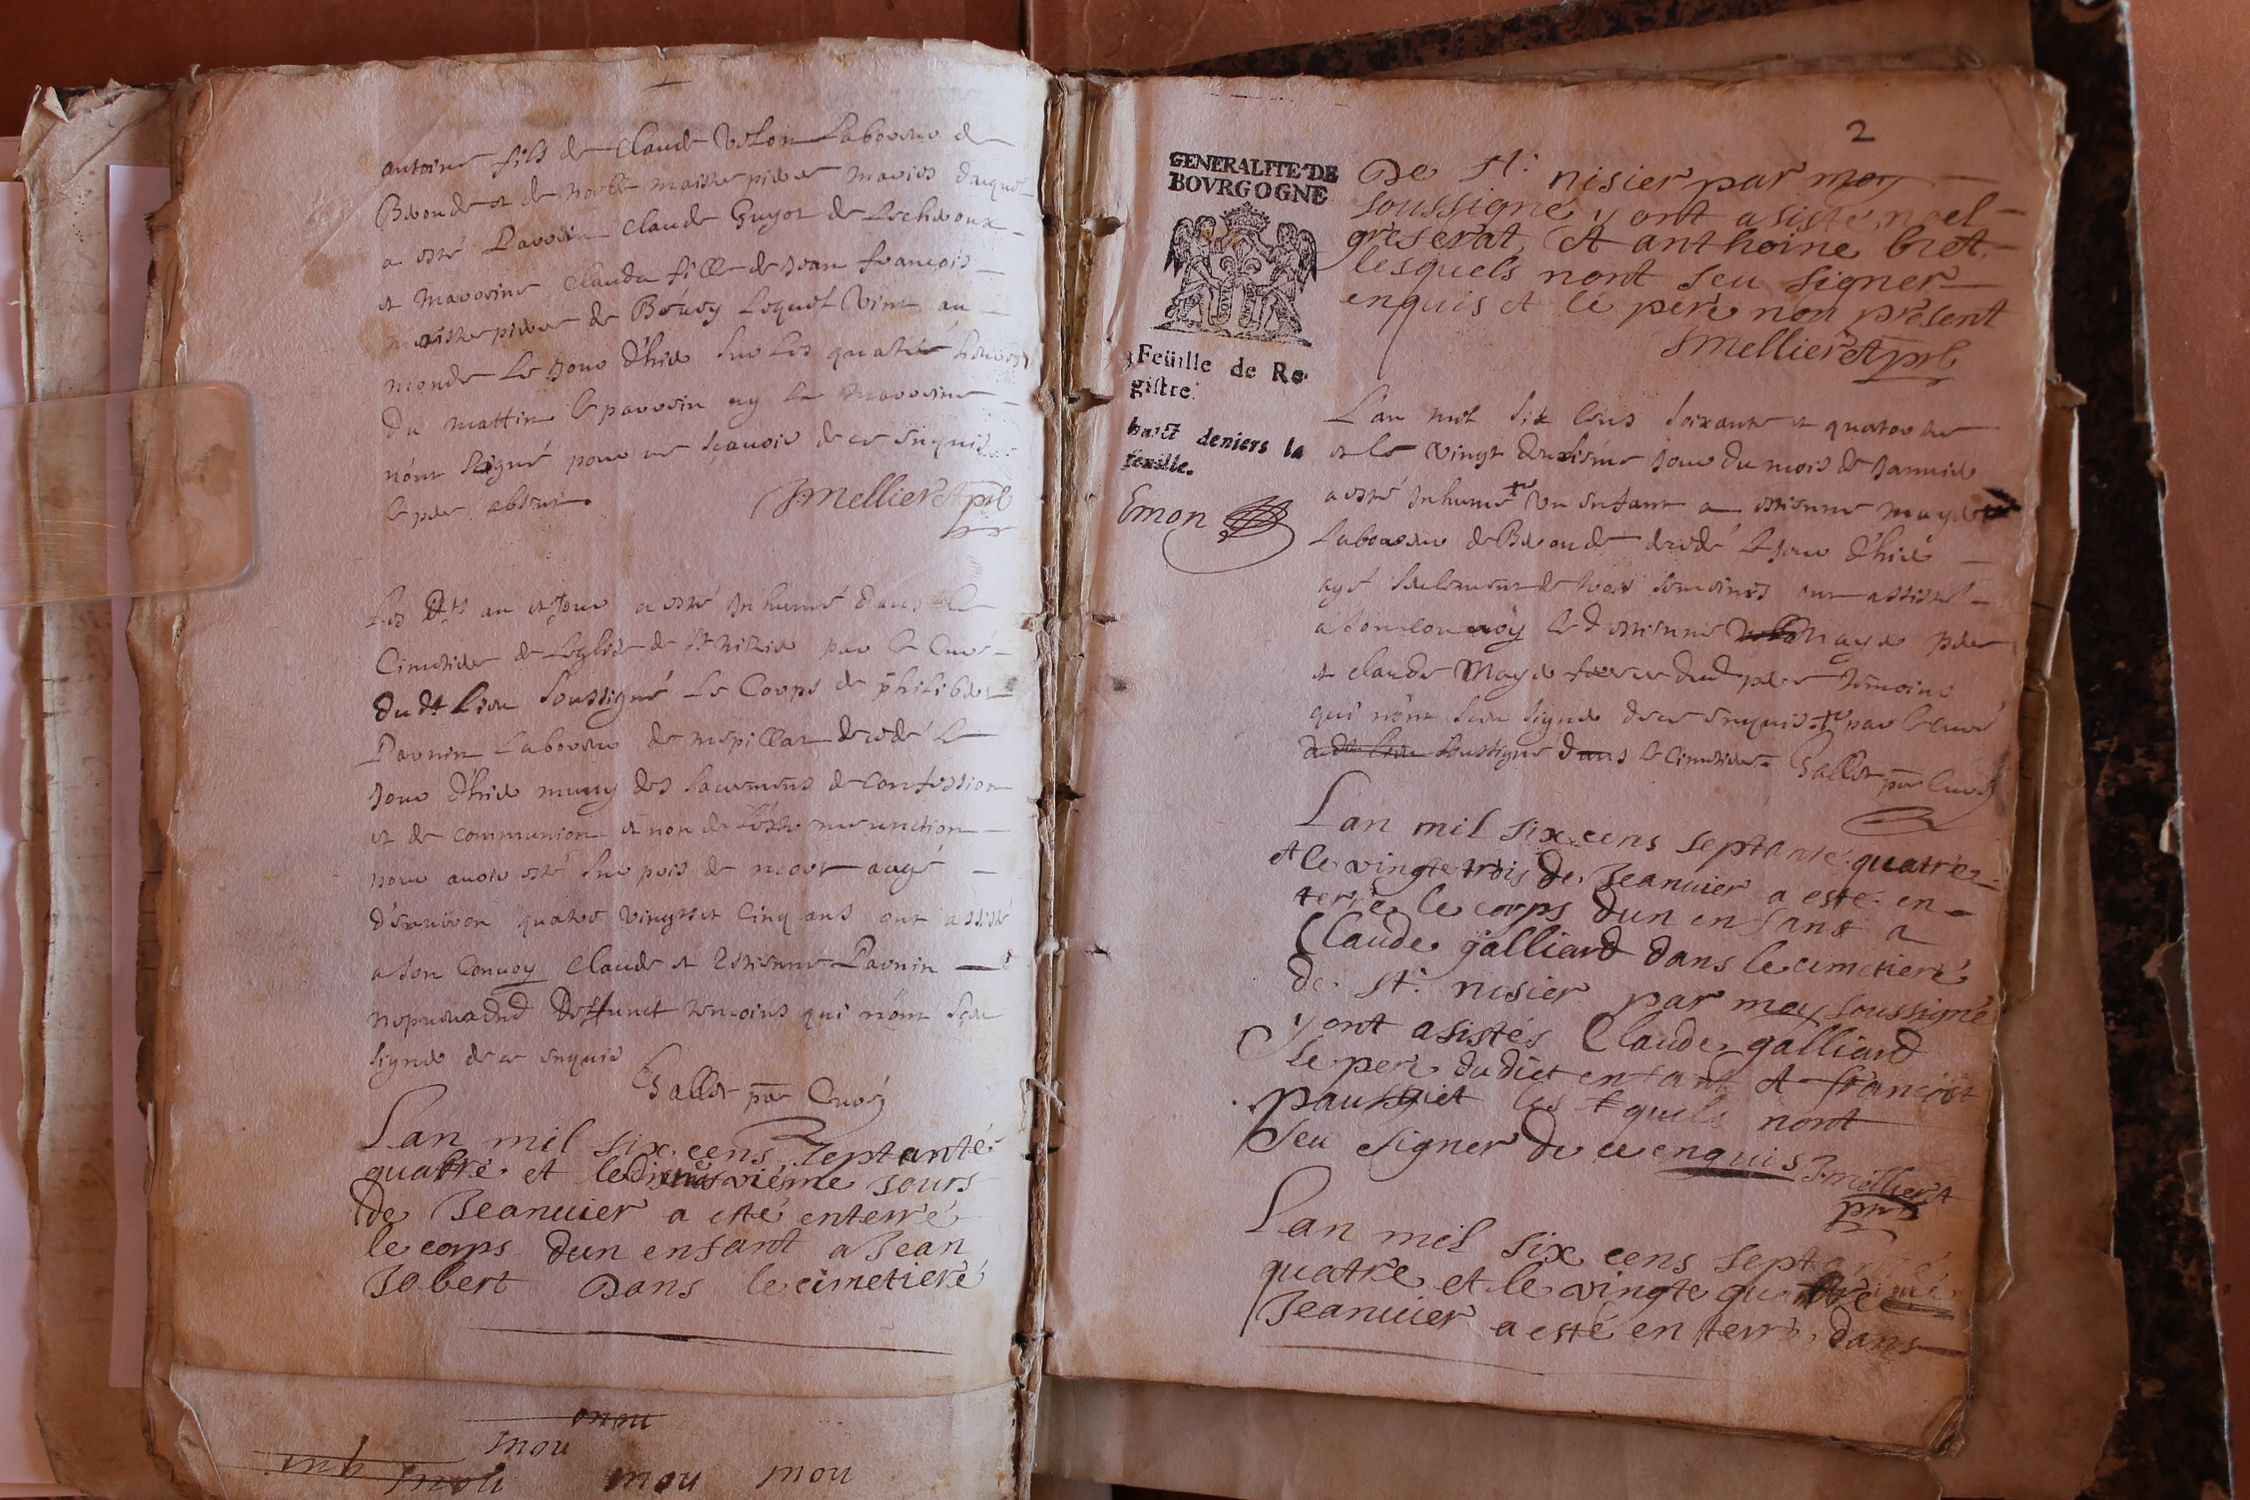 antoine fils de Claude Laboureur de
et de maistre
a esté Parrain Claude Guyot de
et Marreine Clauda fille de Jean françois
de lequel vint au
monde le Jour d'hier sur les quatre heures
du mattin le parrein ny la Marreine
n'ont signé pour ne scavoir de ce enquis
le pere absent. JMellier ptre
Les dts an et Jour a esté Inhumé dans le
Cimetiere de Leglise de St nisier par le Curé
du dt Lieu soussigné Le Corps de philiber
Pavnin Laboureur de decedé le
Jour d'hier muny des sacremens de Confession
et de communion et non de unction
pour avoir esté de mort augé
d'environ quatre vingts et Cinq ans ont assisté
a son Convoy Claude et Estienne Pavnin
dud Deffunct temoins qui n'ont sçeu
signer de ce enquis
Gallet pbr Curé
Lan mil six cens septante
quatre et le jours
de Jeanuier a esté enterré
le corps dun enfant a Jean
Jobert Dans le cimetieré
onou
mou
mou mou mou
2
GENERALITE DE
BOVRGOGNE
Feüille de Re-
gistre.
huict deniers la
feuille.
Emon
De St. nisier par moy
soussigné y ont asisté noel
greserat, et anthoine bret
lesquels nont seu signer
enquis et le peré non présent
JMellier ptr
L'an mil six Cens soixante et quatorze
et le vingt deuxiéme Jour du mois de Janvier
a esté Inhumé un enfant a estienne mayer
Laboureur de decedé le Jour d'hier
agé seulement de trois semaines ont assisté
a son convoy le d estienne Mayer pere
et claude Mayer frere dud pere temoins
qui n'ont sceu signer de ce enquis par le curé
soussigné dans le Cimetiere. Gallet pbr Curé
Lan mil six cens septante quatre
et le vingte trois de Jeanuier a esté en-
terré le corps dun enfant a
Claude galliard dans le cimetieré
de St. nisier par moy soussigné
y ont asistés Claude galliard
le peré dudict enfant et françois
lesquels nont
seu signer de ce enquis JMellier
ptr
Lan mil six cens septante
quatre et le vingte quatre
Jeanuier a esté enterré dans